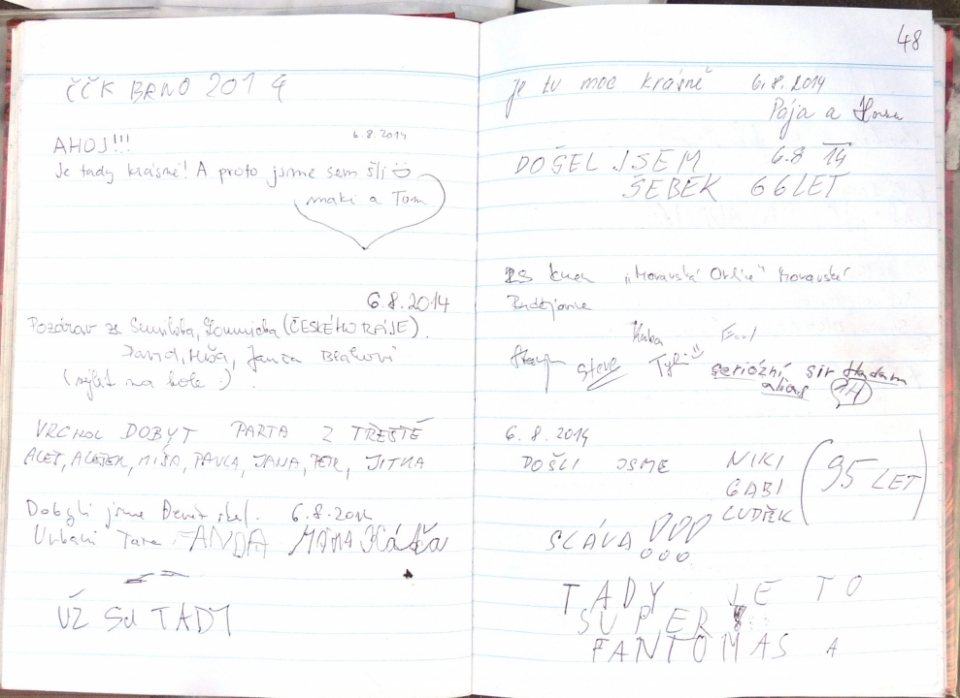 ČČK BRNO 2014
AHOJ!!! 6.8.2014
Je tady krásně! A proto jsme sem šli
maki a Tom
6.8.2014
Pozdrav ze Semilska, Lomnicka (ČESKÉHO RÁJE).
David, Míša, Janča
(výlet na kole :)
VRCHOL DOBYT PARTA Z TŘEŠTĚ
ALEŠ, ALEŠEK, MÍŠA, PAVLA, JANA, PETR, JITKA
Dobyli jsme 6.8.2014
Urbani Tata FANDA MAMA Káča
UŽ SU TADY
48
je tu moc krásně 6.8.2014
Pája a Honza
DOŠEL JSEM 6.8 14
ŠEBEK 66 LET
"Moravská Orlice" Moravské
Budějovice
Kuba
steve Tyli seriózní sir Hadam
alias H
6.8.2014
DOŠLI JSME NIKI (95 LET)
GABI
LUDĚK
SLÁVA !!!
TADY JE TO
SUPER
FANTOMAS A